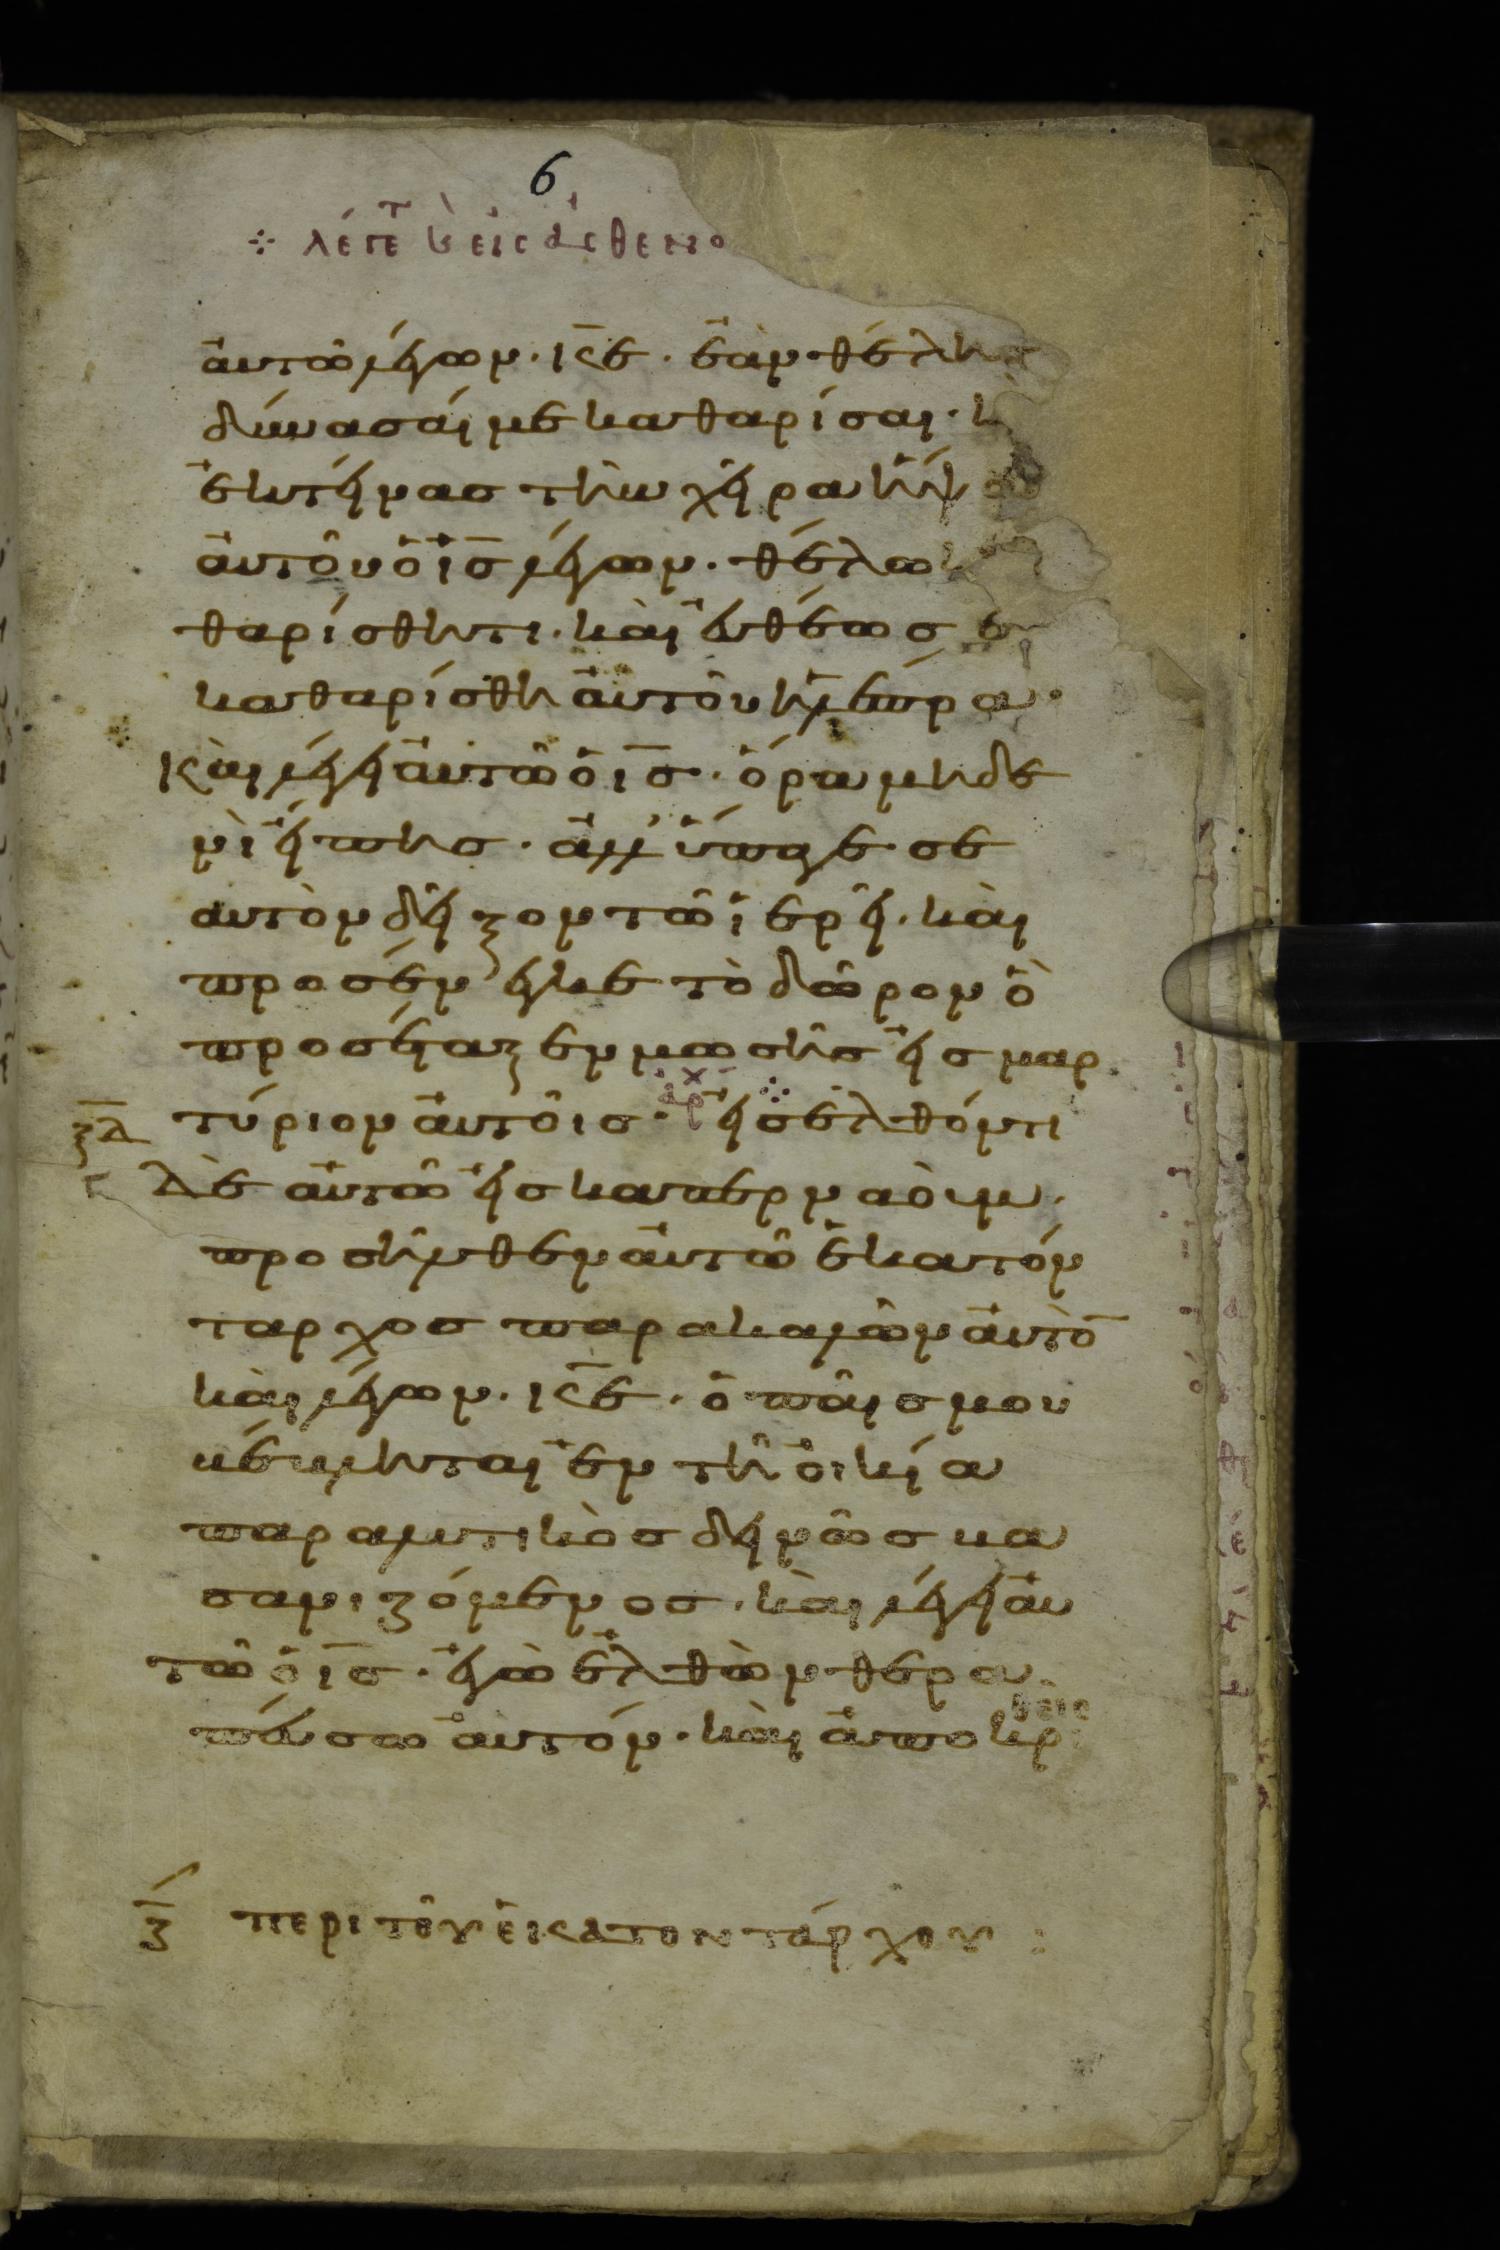 6
λέγετ καὶ εἰς ἀσθενο
αὐτῶ λέγων· κ̅ε̅· ἐὰν θέλης
δύνασαί με καθαρίσαι· κ
ἐκτείνας τὴν χεῖρα ἥψ
αὐτοῦ ὁ ι̅ς̅ λέγων· θέλω
θαρίσθητι· καὶ εὐθέως ἐ
καθαρίσθη αὐτοῦ ἡ λέπρα·
καὶ λέγει αὐτῶ ὁ ι̅ς̅· ὅρα μηδε
νὶ εἴπης· ἀλλ' ὕπαγε σε
αυτὸν δεῖξον τῶ ἱερεῖ· καὶ
προσένεγκε τὸ δῶρον ὃ
προσέταξεν μωσῆς εἰς μαρ
τύριον αὐτοῖς· ἀρχ εἰσελθόντι
ξ̅δ̅
Δὲ αὐτῶ εἰς καπερναοὺμ·
προσῆλθεν αὐτῶ ἑκατόν
ταρχος παρακαλῶν αὐτὸ̅
καὶ λέγων· κ̅ε̅· ὁ παῖς μου
βέβληται ἐν τῆ οἰκία
παραλυτικὸς δεινῶς βα
σανιζόμενος· καὶ λέγει αὐ
τῶ ὁ ι̅ς̅· ἐγὼ ἐλθὼν θερα
πεύσω αὐτόν· καὶ ἀποκρι
θεὶς
ζ̅ περι τοῦ ἑκατοντάρχου :